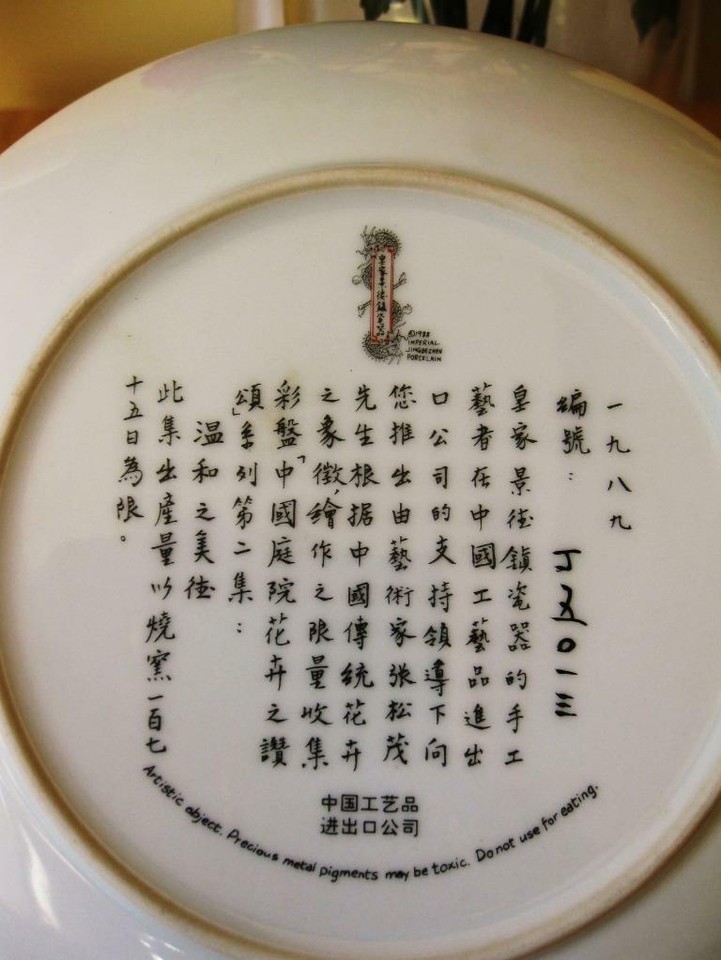 皇家景德鎮瓷器
©1988
IMPERIAL
JINGDEZHEN
PORCELAIN
一九八九
編號：丁五0一三
皇家景徳鎮瓷器的手工
藝者在中國工藝品進出
口公司的支持領導下向
您推出由藝術家张松茂
先生根据中國傳統花卉
之象徵，繪作之限量收集
彩盤「中國庭院花卉之讚
頌」系列第二集：
温和之美徳
此集出產量以燒窯一百七
十五日為限。
中国工艺品
进出口公司
Artistic object. Precious metal pigments may be toxic. Do not use for eating.